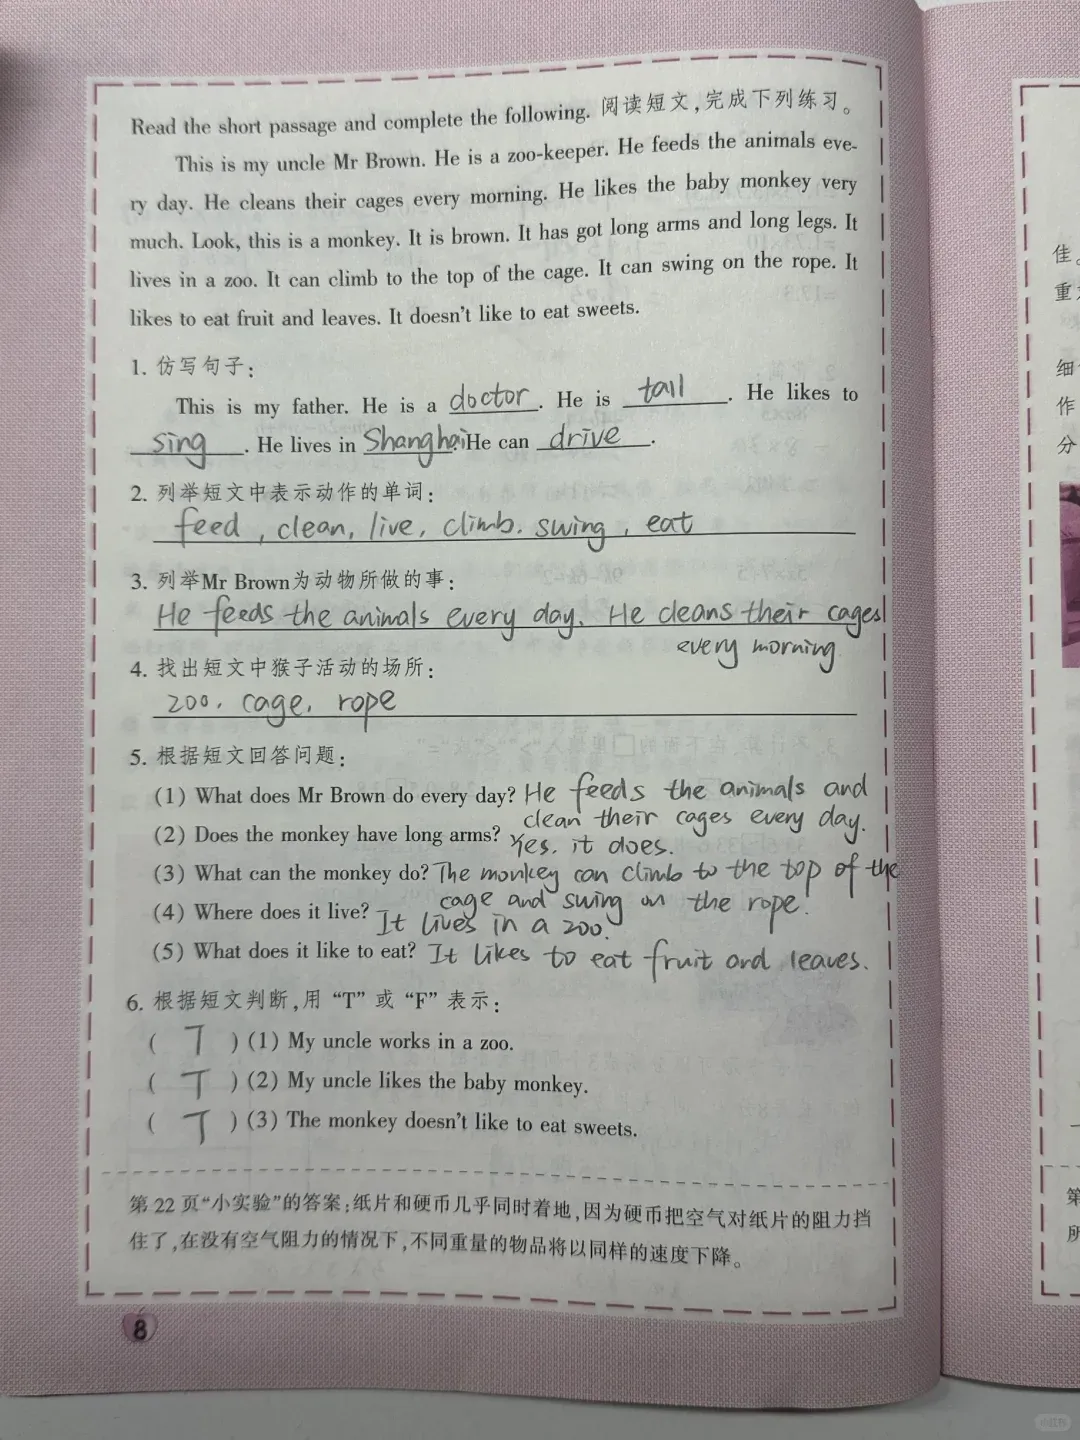 Read the short passage and complete the following. 阅读短文,完成下列练习。
This is my uncle Mr Brown. He is a zoo-keeper. He feeds the animals eve-
ry day. He cleans their cages every morning. He likes the baby monkey very
much. Look, this is a monkey. It is brown. It has got long arms and long legs. It
lives in a zoo. It can climb to the top of the cage. It can swing on the rope. It
likes to eat fruit and leaves. It doesn't like to eat sweets.
1. 仿写句子:
This is my father. He is a doctor. He is tall. He likes to
sing. He lives in Shanghai. He can drive.
2. 列举短文中表示动作的单词:
feed, clean, live, climb. swing, eat
3. 列举Mr Brown为动物所做的事:
He feeds the animals every day. He cleans their cages
every morning.
4. 找出短文中猴子活动的场所:
zoo. cage. rope
5. 根据短文回答问题:
(1) What does Mr Brown do every day? He feeds the animals and
clean their cages every day.
(2) Does the monkey have long arms? Yes. it does.
(3) What can the monkey do? The monkey can climb to the top of the
cage and swing on the rope.
(4) Where does it live? It lives in a zoo.
(5) What does it like to eat? It likes to eat fruit and leaves.
6. 根据短文判断,用“T”或“F”表示:
( T ) (1) My uncle works in a zoo.
( T ) (2) My uncle likes the baby monkey.
( T ) (3) The monkey doesn't like to eat sweets.
第22页“小实验”的答案:纸片和硬币几乎同时着地,因为硬币把空气对纸片的阻力挡
住了,在没有空气阻力的情况下,不同重量的物品将以同样的速度下降。
8
佳。
重
细
作
分
第
所
小红书